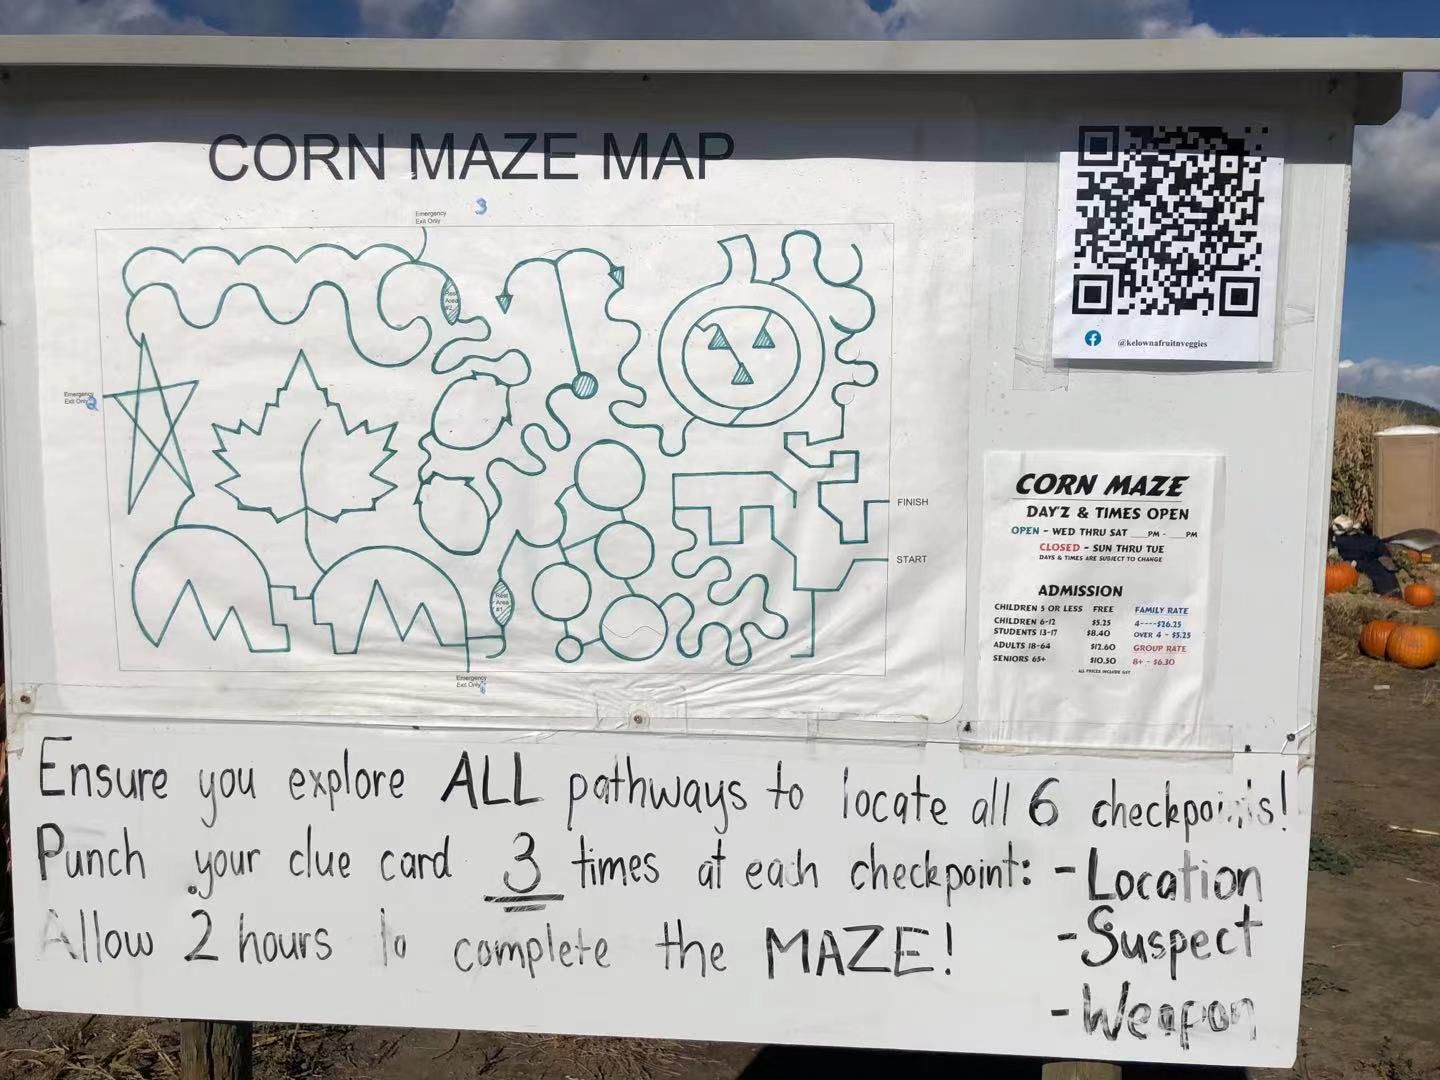 CORN MAZE MAP
3
Emergency
Exit Only
Rest
Area
#2
Emergency
Exit Only
FINISH
START
Rest
Area
#1
Emergency
Exit Only
@kelownafruitnveggies
CORN MAZE
DAY'Z & TIMES OPEN
OPEN - WED THRU SAT ___PM - ___PM
CLOSED - SUN THRU TUE
DAYS & TIMES ARE SUBJECT TO CHANGE
ADMISSION
CHILDREN 5 OR LESS FREE
CHILDREN 6-12 $5.25
STUDENTS 13-17 $8.40
ADULTS 18-64 $12.60
SENIORS 65+ $10.50
FAMILY RATE
4----$26.25
OVER 4 - $5.25
GROUP RATE
8+ - $6.30
ALL PRICES INCLUDE GST
Ensure you explore ALL pathways to locate all 6 checkpoints!
Punch your clue card 3 times at each checkpoint: - Location
Allow 2 hours to complete the MAZE! - Suspect
- Weapon